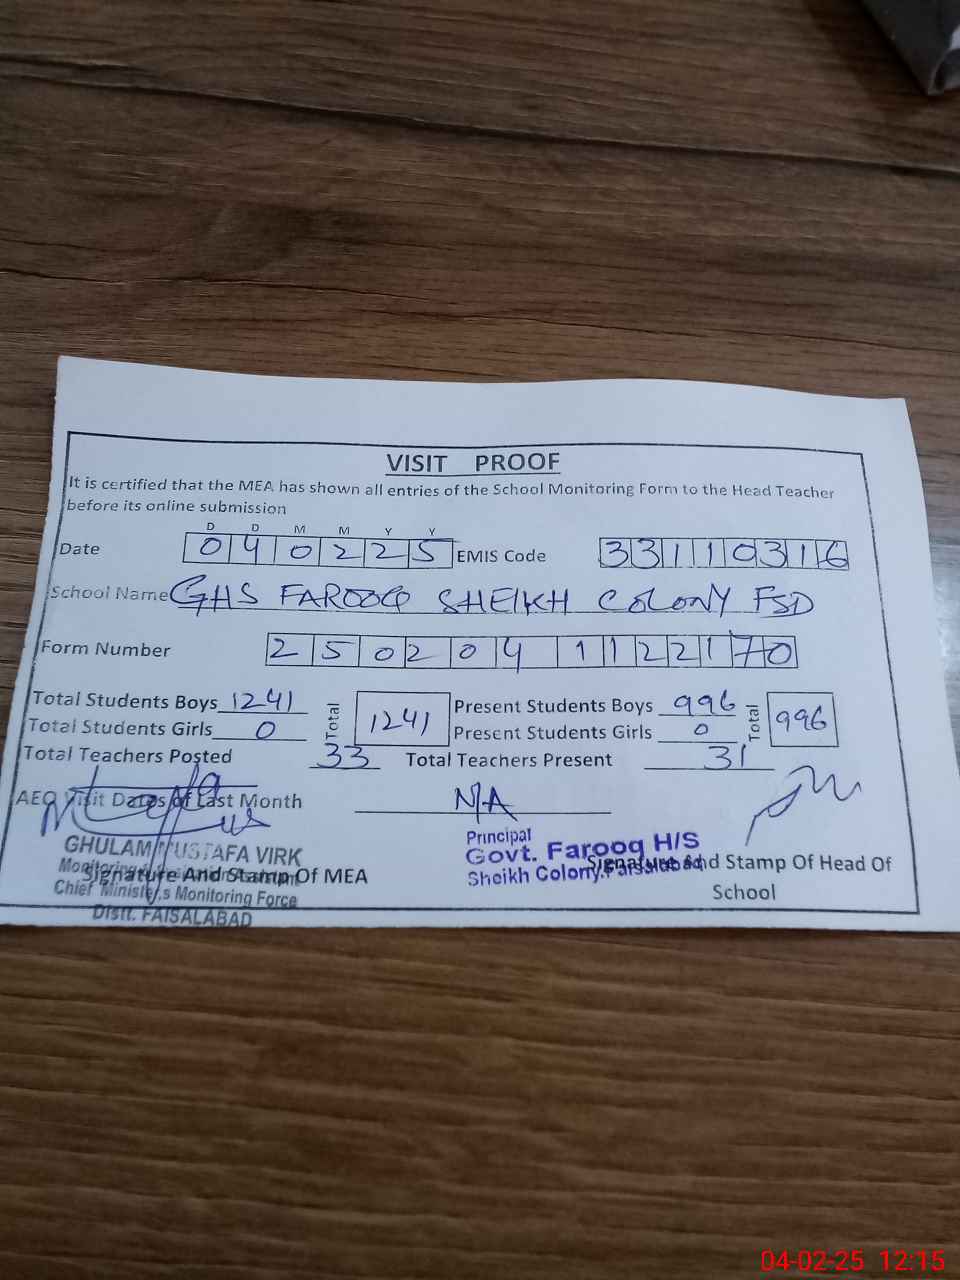 VISIT PROOF
It is certified that the MEA has shown all entries of the School Monitoring Form to the Head Teacher
before its online submission
D D M M Y Y
Date 0 4 0 2 2 5 EMIS Code 3 3 1 1 0 3 1 6
School Name GHS FAROOQ SHEIKH COLONY FSD
Form Number 2 5 0 2 0 4 1 1 2 2 1 7 0
Total Students Boys 1241 Total 1241 Present Students Boys 996 Total 996
Total Students Girls 0 Present Students Girls 0
Total Teachers Posted 33 Total Teachers Present 31
AEO Visit Dates of Last Month N/A
GHULAM MUSTAFA VIRK
Signature And Stamp Of MEA
Chief Minister,s Monitoring Force
Distt. FAISALABAD
Principal
Govt. Farooq H/S
Sheikh Colony, Faisalabad
Signature And Stamp Of Head Of
School
04-02-25 12:15